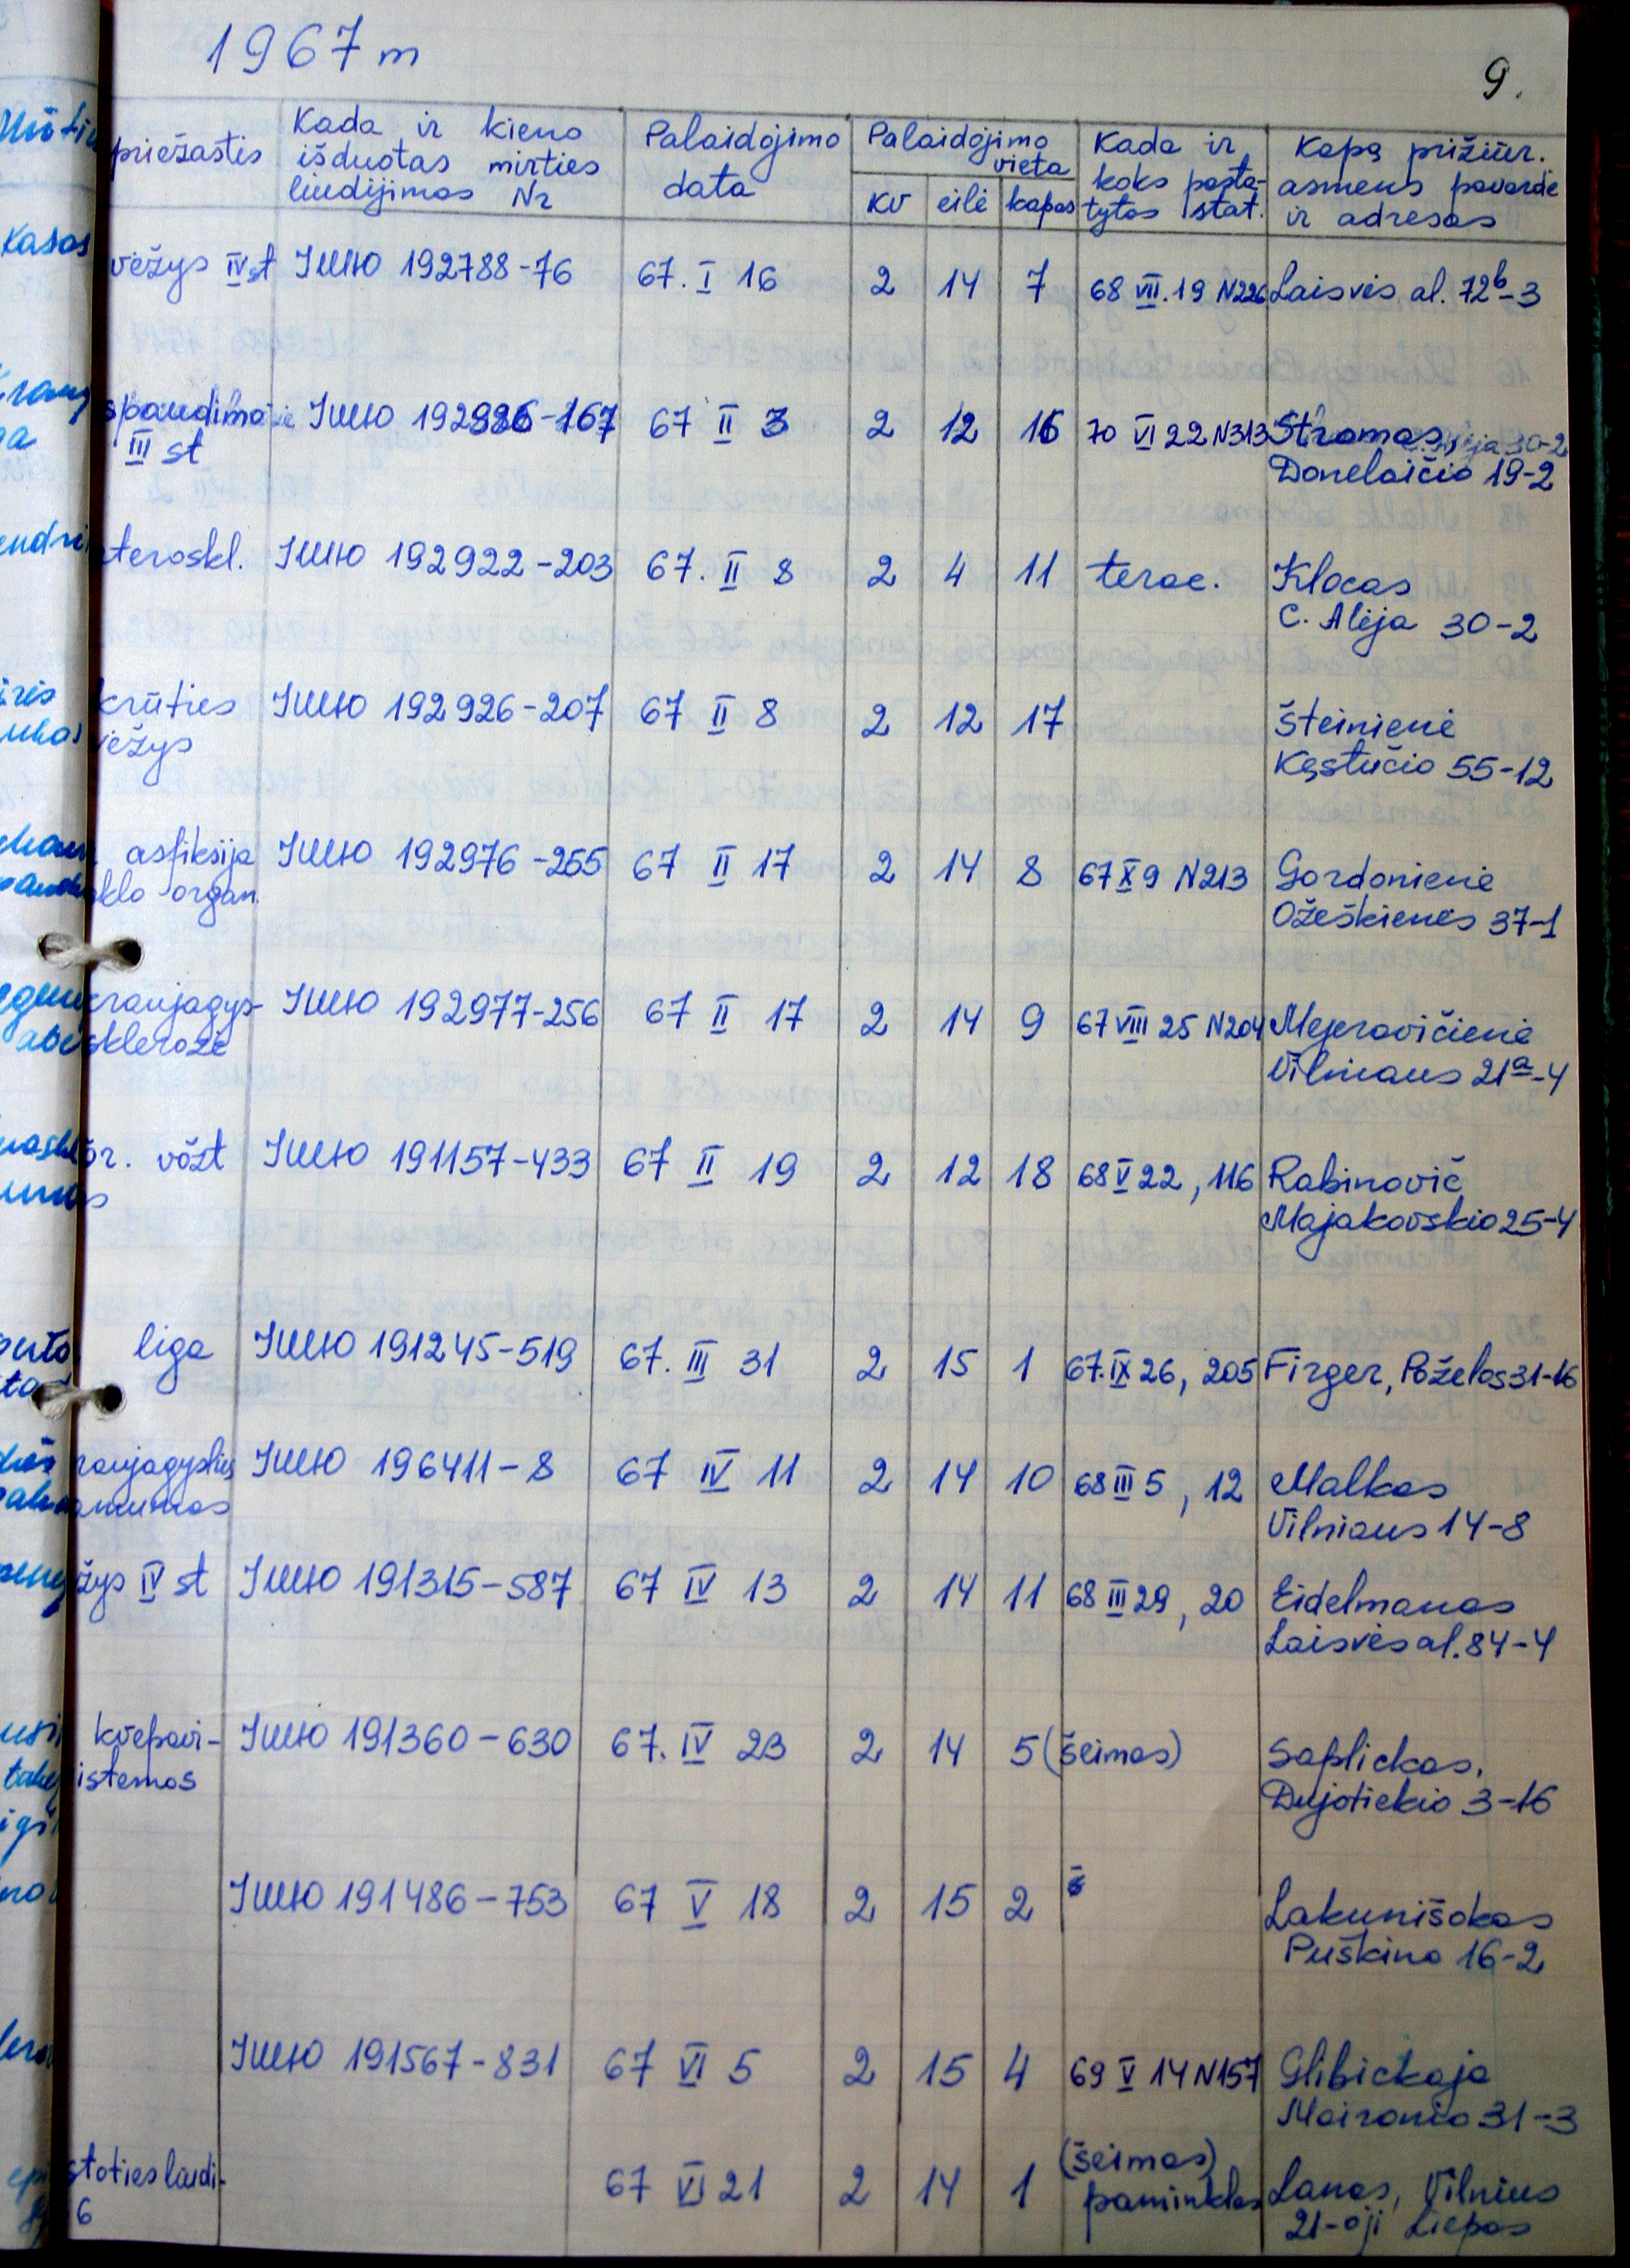 1967 m
9.
priežastis
Kada ir kieno
išduotas mirties
liudijimas Nr
Palaidojimo
data
Palaidojimo
vieta
KV eilė kapas
Kada ir
koks pasta-
tytas stat.
Kapą prižiūr.
asmens pavardė
ir adresas
vėžys IV st IШЮ 192788-76 67. I 16 2 14 7 68 VII.19 N226 Laisvės al. 72b-3
spaudimo IШЮ 192886-167 67 II 3 2 12 16 70 VI 22 N313 Stromas,
III st
Donelaičio 19-2
teroskl. IШЮ 192922-203 67. II 8 2 4 11 terac. Klocas
C. Alėja 30-2
krūties IШЮ 192926-207 67 II 8 2 12 17 Šteinienė
ėžys
Kęstučio 55-12
asfiksija IШЮ 192976-255 67 II 17 2 14 8 67 X 9 N213 Gordonienė
sklo organ.
Ožeškienės 37-1
kraujagys- IШЮ 192977-256 67 II 17 2 14 9 67 VIII 25 N204 Mejerovičienė
sklerozė
Vilniaus 21a-4
vožt IШЮ 191157-433 67 II 19 2 12 18 68 V 22, 116 Rabinovič
Majakovskio 25-4
liga IШЮ 191245-519 67. III 31 2 15 1 67.IX 26, 205 Firger, Poželos 31-16
raujagyslių IШЮ 196411-8 67 IV 11 2 14 10 68 III 5, 12 Malkas
Vilniaus 14-8
žys IV st IШЮ 191315-587 67 IV 13 2 14 11 68 III 29, 20 Eidelmanas
Laisvės al. 84-4
kvėpavi- IШЮ 191360-630 67. IV 23 2 14 5 (šeimos) Saplickas,
istemos
Dujotiekio 3-16
IШЮ 191486-753 67 V 18 2 15 2 Lakunišokas
Puškino 16-2
IШЮ 191567-831 67 VI 5 2 15 4 69 V 14 N157 Glibickaja
Maironio 31-3
stoties liudi- 67 VI 21 2 14 1 (šeimos)
paminklas Lanas, Vilnius
6
21-oji Liepos